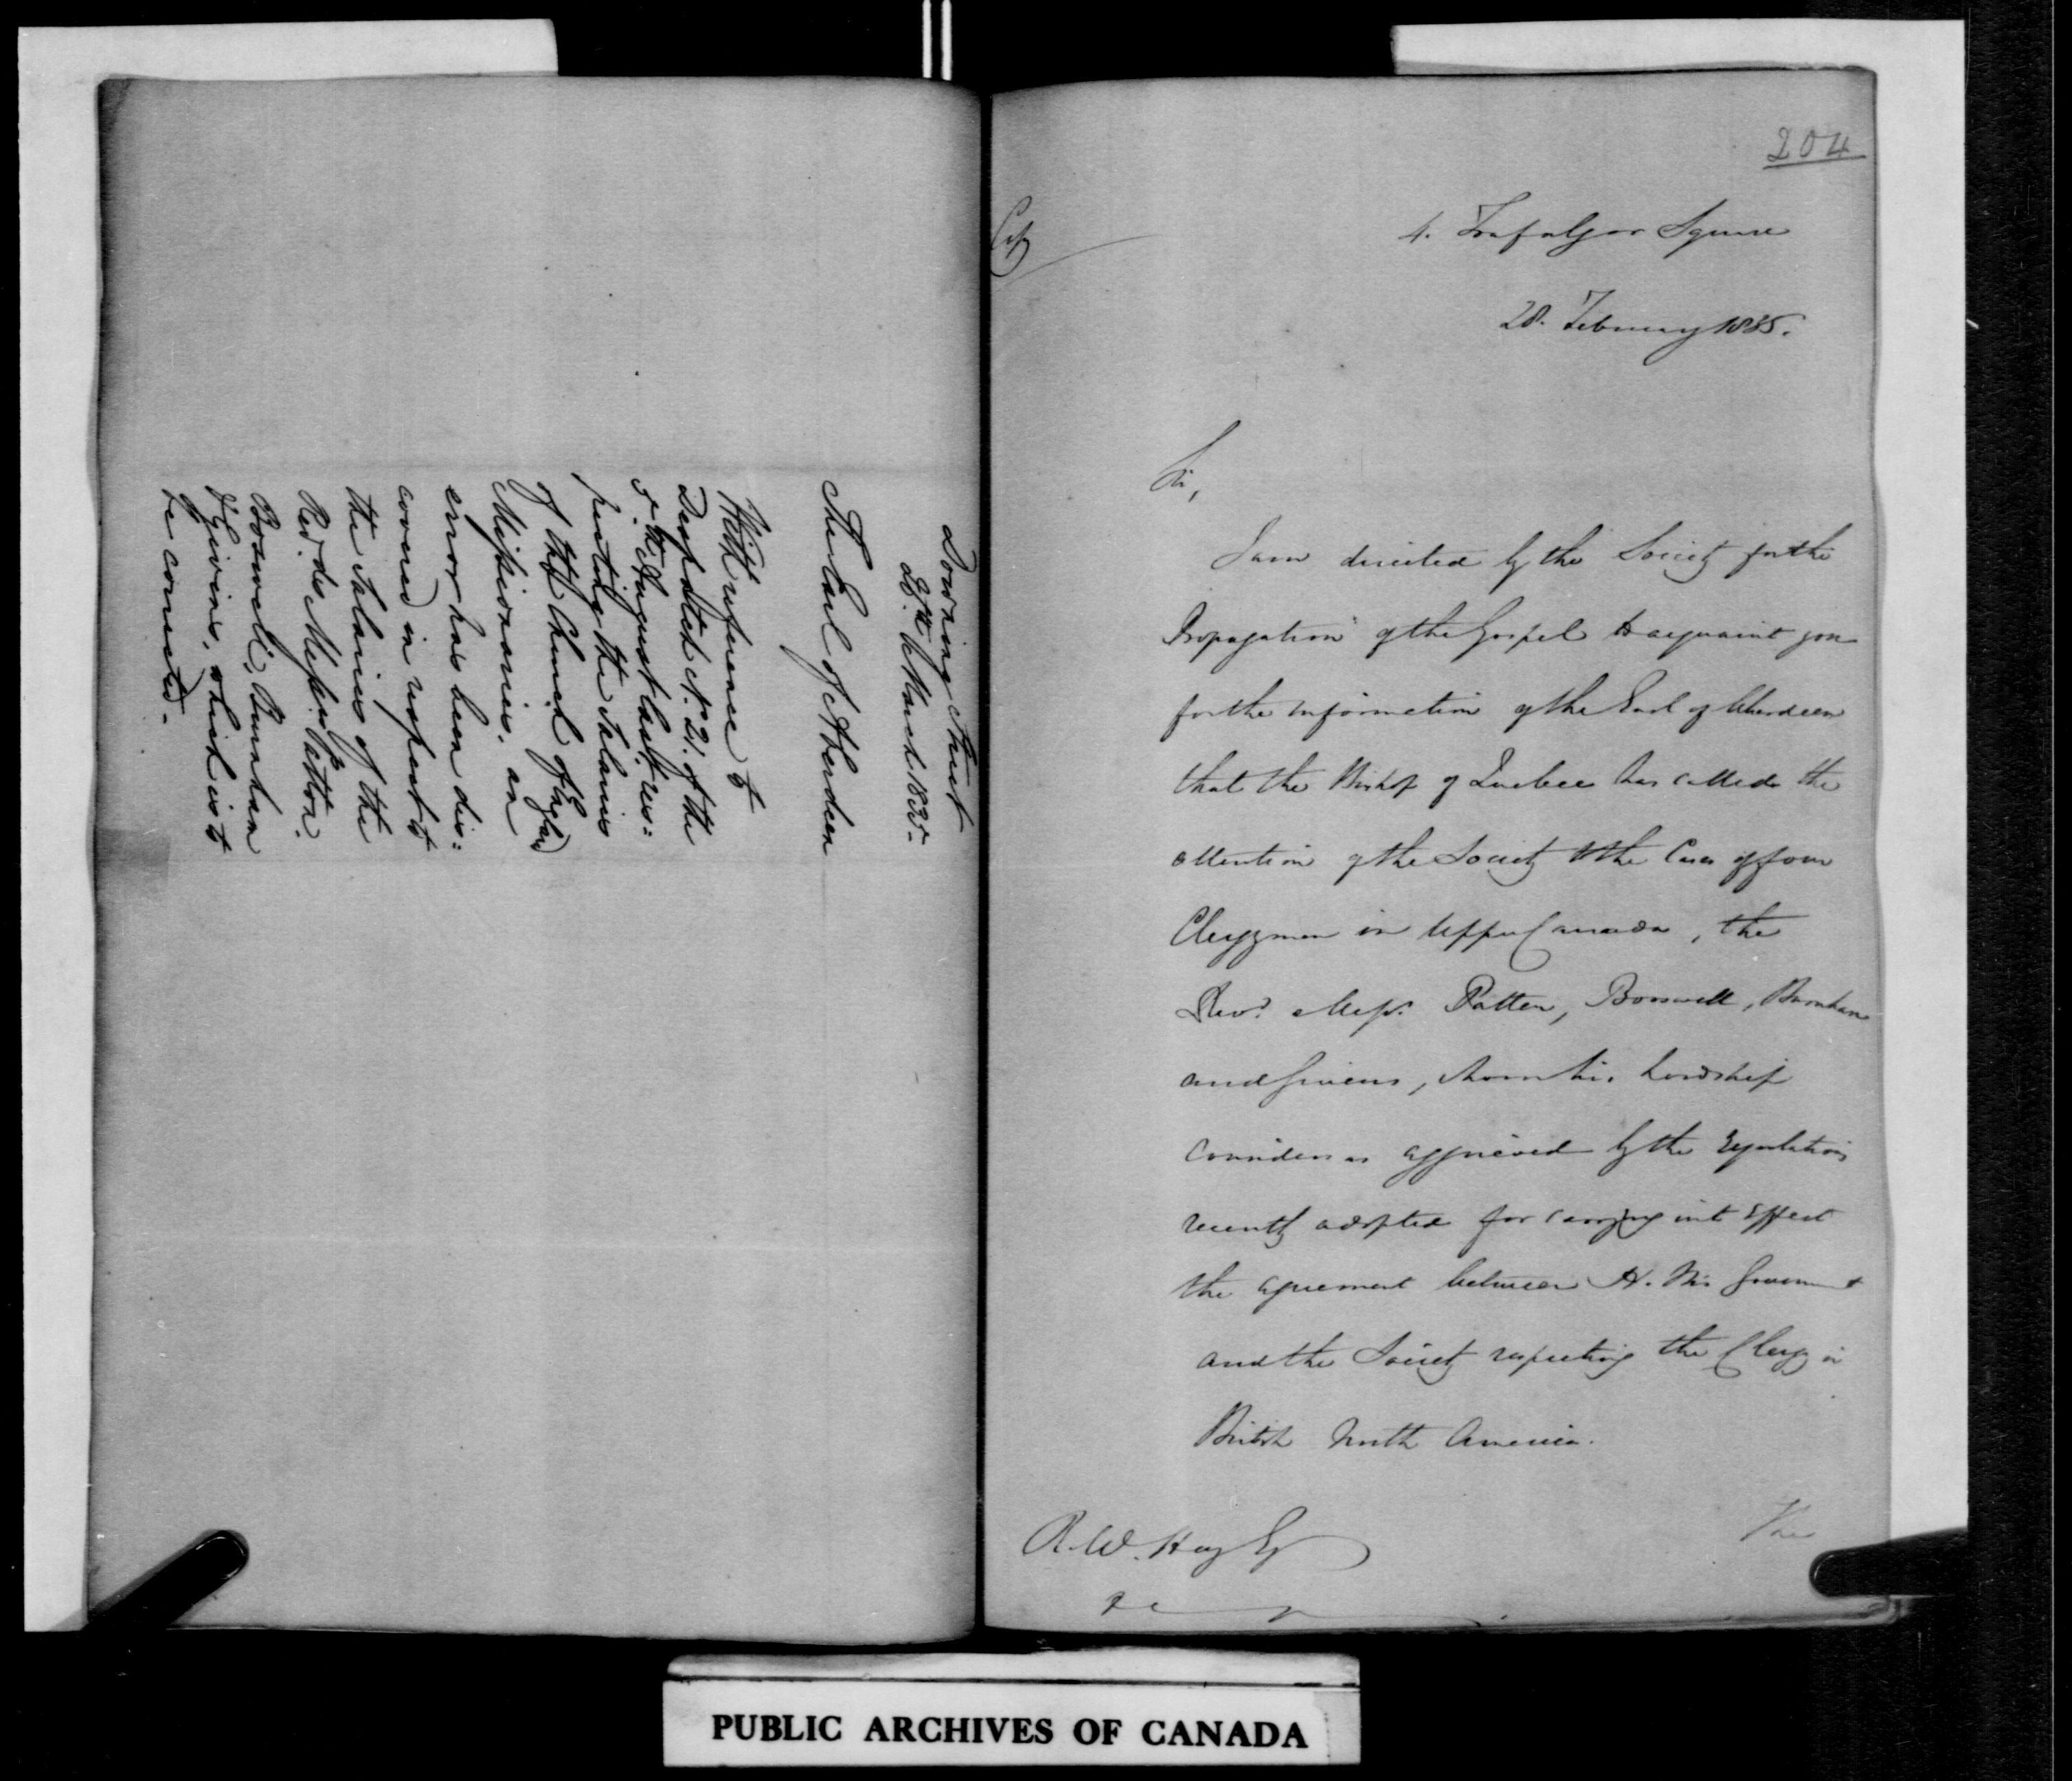 Downing Street
28th March 1835.
The Earl of Aberdeen
With reference to
Despatch No. 21. of the
5th August last, res:
pecting the Salaries
of the Church of England
Missionaries, an
error has been dis:
covered in respect to
the Salaries of the
Revds Messrs Patton.
Boswell, Burnham
& Givins, which is to
be corrected.
204
Copy
4. Trafalgar Square
28. February 1835.
Sir,
I am directed by the Society for the
Propagation of the Gospel to acquaint you
for the information of the Earl of Aberdeen
that the Bishop of Quebec has called the
attention of the Society to the Cases of four
Clergymen in Upper Canada, the
Revd. Messrs. Patten, Boswell, Burnham
and Givens, whom his Lordship
considers as aggrieved by the regulations
recently adopted for carrying into effect
the agreement between H. M's Governmt
and the Society respecting the Clergy in
British North America.
The
R. W. Hay Esq
PUBLIC ARCHIVES OF CANADA